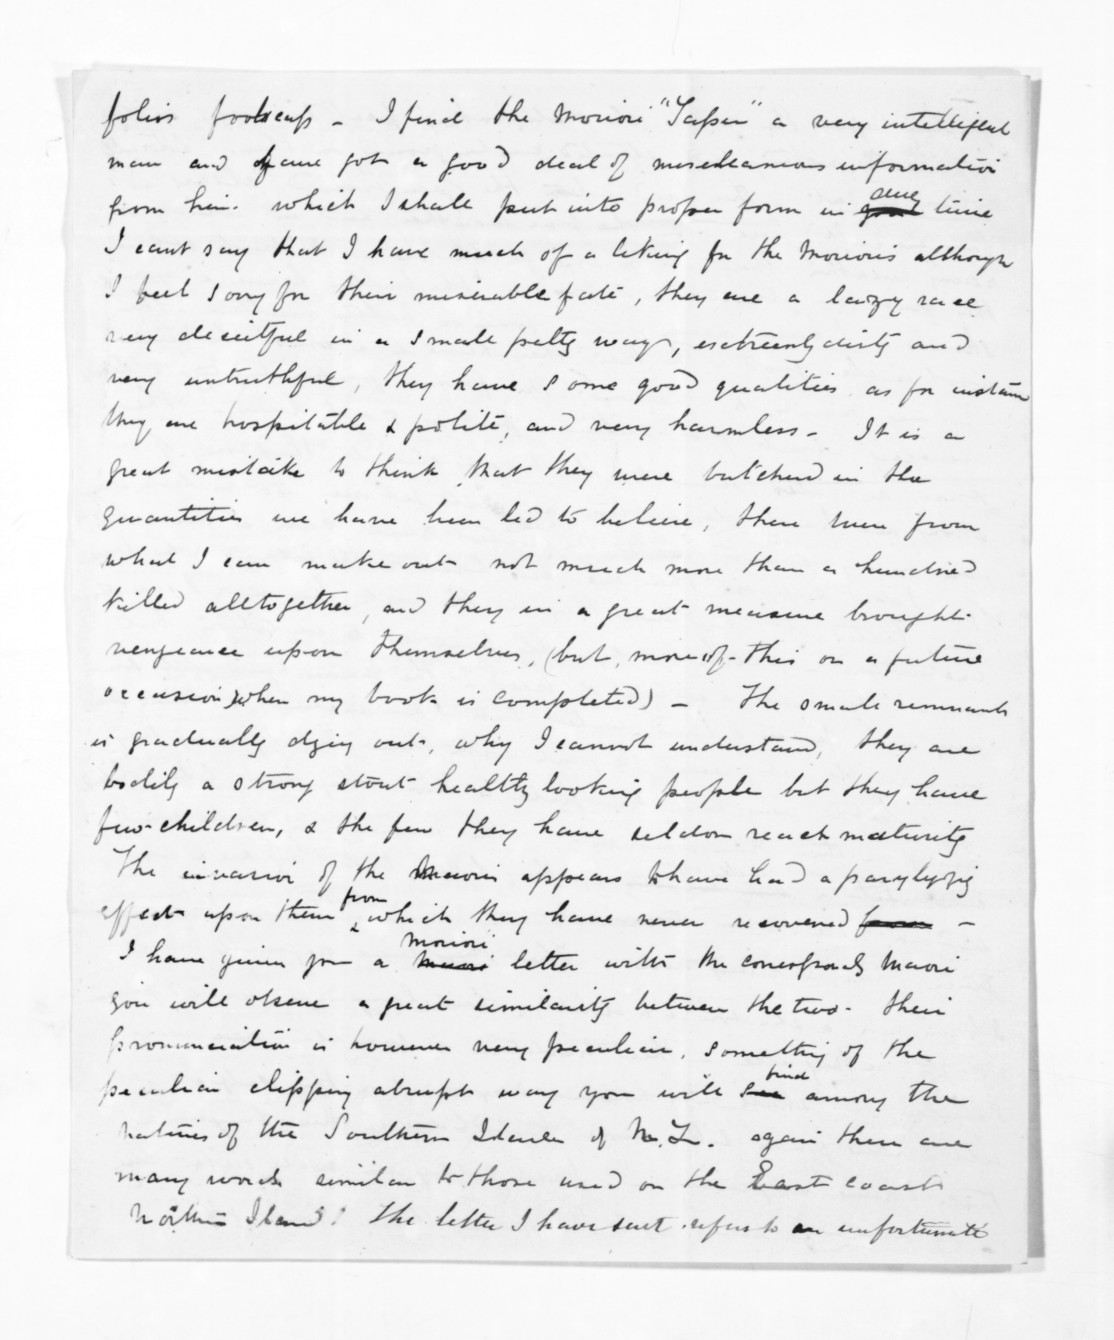 folios foolscap - I find the Moriori "Tapu" a very intelligent
man and have got a good deal of miscellaneous information
from him. which I shall put into proper form in due time
I cant say that I have much of a liking for the Morioris although
I feel sorry for their miserable fate, they are a lazy race
very deceitful in a small petty way, extreemly dirty and
very untruthful, they have some good qualities as for instance
they are hospitable & polite, and very harmless - It is a
great mistake to think that they were butchered in the
quantities we have been led to believe, there were from
what I can make out not much more than a hundred
killed alltogether, and they in a great measure brought
vengeance upon themselves, (but, more of this on a future
occasion when my book is completed) - The small remnant
is gradually dying out, why I cannot understand, they are
bodily a strong stout healthy looking people but they have
few children, & the few they have seldom reach maturity
The invasion of the Maoris appears to have had a paralyzing
effect upon them from which they have never recovered from -
I have given you a Moriori letter with the corresponding Maori
you will observe a great similarity between the two. their
pronunciation is however very peculiar, something of the
peculiar clipping abrupt way you will find among the
natives of the Southern Island of N.Z. again there are
many words similar to those used on the East coast
Northern Island. The letter I have sent refers to an unfortunate